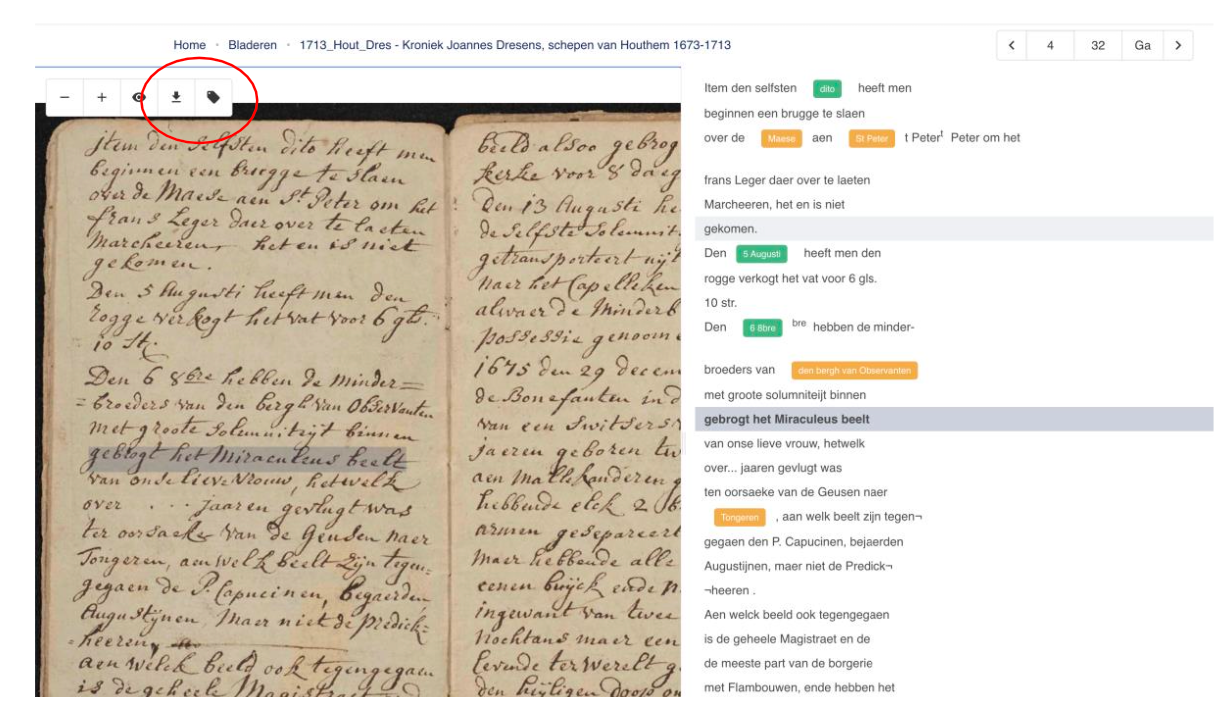 Home · Bladeren · 1713_Hout_Dres - Kroniek Joannes Dresens, schepen van Houthem 1673-1713
4 32 Ga
jtem den selfsten dito heeft men
beginnen een brugge te slaen
over de Maese aen St Peter om het
frans Leger daer over te laeten
Marcheeren, het en is niet
gekomen.
Den 5 Augusti heeft men den
rogge verkogt het vat voor 6 gls.
10 St.
Den 6 8bre hebben de minder=
=broeders van den bergh van Observanten
met groote solemniteijt binnen
gebrogt het Miraculeus beelt
van onse lieve Vrouw, hetwelk
over ... jaaren gevlugt was
ter oorsaeke van de Geusen naer
Tongeren, aen welk beelt zijn tegen=
gegaen de P. Capucinen, begaerden
Augustijnen, maer niet de predick=
=heeren,
aen welck beeld ook tegengegaen
is de geheele Magistraet
beeld alsoo gebrog
kerke voor 8 daeg
Den 13 Augusti he
de selfste Solemnit
getransporteert uijt
naer het Capelleken
alwaer de Minderb
possessie genoom
1675 den 29 decem
de Bonefanten in d
van een Switsers
jaeren geboren
aen Malkanderen
hebbende elck 2
armen gesepareert
maer hebbende alle
eenen buijck ende n
ingewant van twee
Nochtans maer een
levende ter werelt g
den heijligen doop on
Item den selfsten dito heeft men
beginnen een brugge te slaen
over de Maese aen St Peter t Petert Peter om het
frans Leger daer over te laeten
Marcheeren, het en is niet
gekomen.
Den 5 Augusti heeft men den
rogge verkogt het vat voor 6 gls.
10 str.
Den 6 8bre bre hebben de minder-
broeders van den bergh van Observanten
met groote solumniteijt binnen
gebrogt het Miraculeus beelt
van onse lieve vrouw, hetwelk
over... jaaren gevlugt was
ten oorsaeke van de Geusen naer
Tongeren , aan welk beelt zijn tegen¬
gegaen den P. Capucinen, bejaerden
Augustijnen, maer niet de Predick¬
¬heeren .
Aen welck beeld ook tegengegaen
is de geheele Magistraet en de
de meeste part van de borgerie
met Flambouwen, ende hebben het